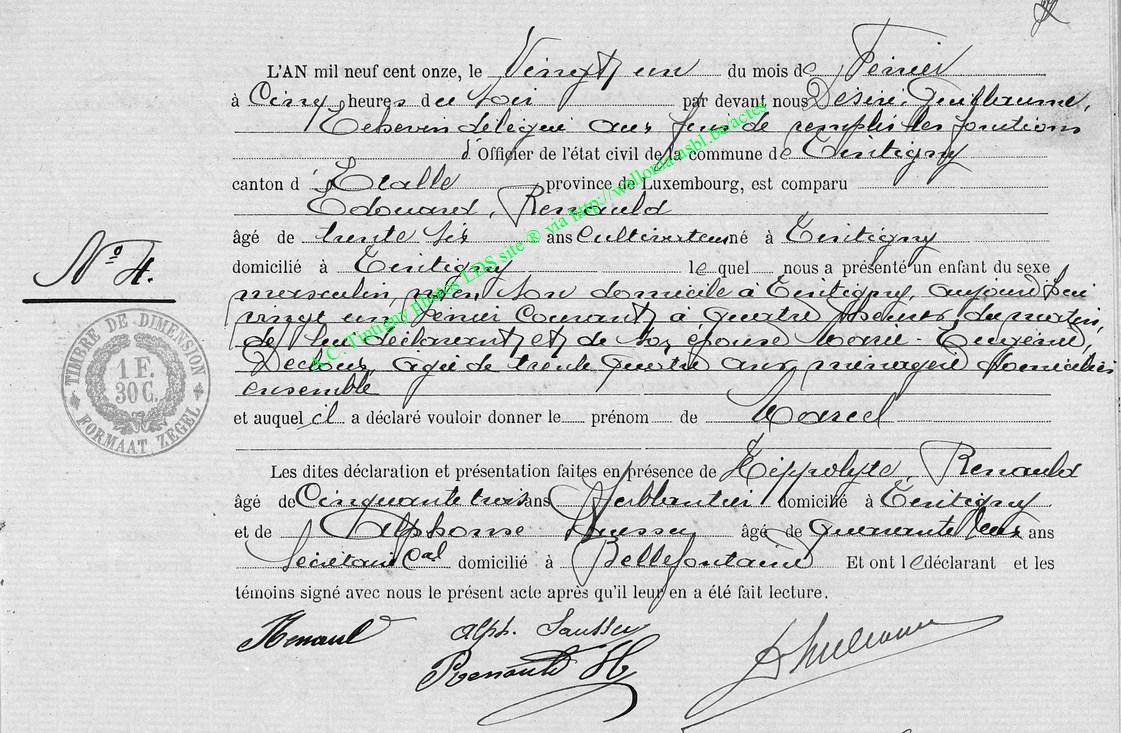 L'AN mil neuf cent onze, le Vingt un du mois de Février
à Cinq heures du soir par devant nous Désiré Guillaume,
Echevin délégué aux fins de remplir les fonctions
d'Officier de l'état civil de la commune de Tintigny
canton d'Etalle province de Luxembourg, est comparu
Edouard, Renauld
âgé de trente six ans Cultivateur né à Tintigny
domicilié à Tintigny lequel nous a présenté un enfant du sexe
masculin, né en son domicile à Tintigny, aujourd'hui
vingt un février courant, à quatre heures du matin,
de lui déclarant, et de son épouse Marie-Eugénie,
âgée de trente quatre ans ménagère domiciliés
ensemble
et auquel il a déclaré vouloir donner le prénom de Marcel
Les dites déclaration et présentation faites en présence de Hippolyte, Renauld
âgé de Cinquante trois ans domicilié à Tintigny
et de Alphonse âgé de quarante deux ans
Secrétaire Cal domicilié à Bellefontaine Et ont le déclarant et les
témoins signé avec nous le présent acte après qu'il leur en a été fait lecture.
N° 4.
TIMBRE DE DIMENSION
1 F.
30 C.
FORMAAT ZEGEL
A.C. Tintigny filmées LDS site ® via http://wallonia-asbl.be/actes
Renauld
Alph.
Renauld H